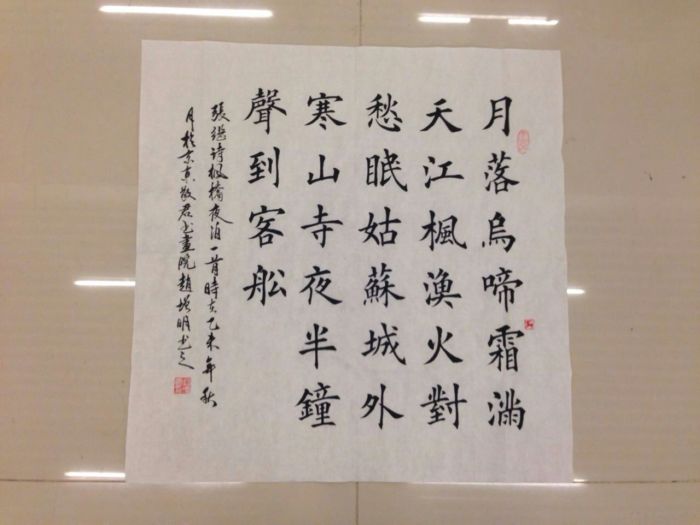 月落烏啼霜滿
天江楓漁火對
愁眠姑蘇城外
寒山寺夜半鐘
聲到客船
張繼詩楓橋夜泊一首時在乙未年秋
月於京東敬君书畫院趙增明书之